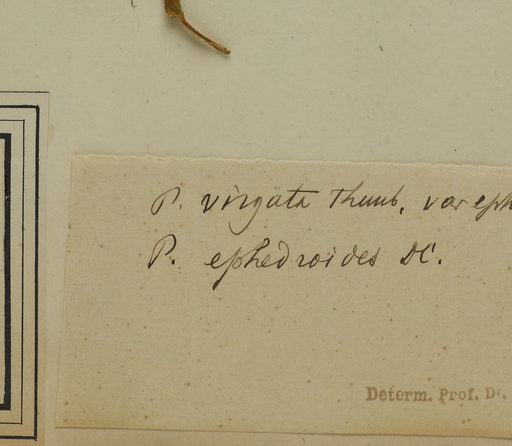 P. virgata Thunb. var eph
P. ephedroides DC.
Determ. Prof. Dr.